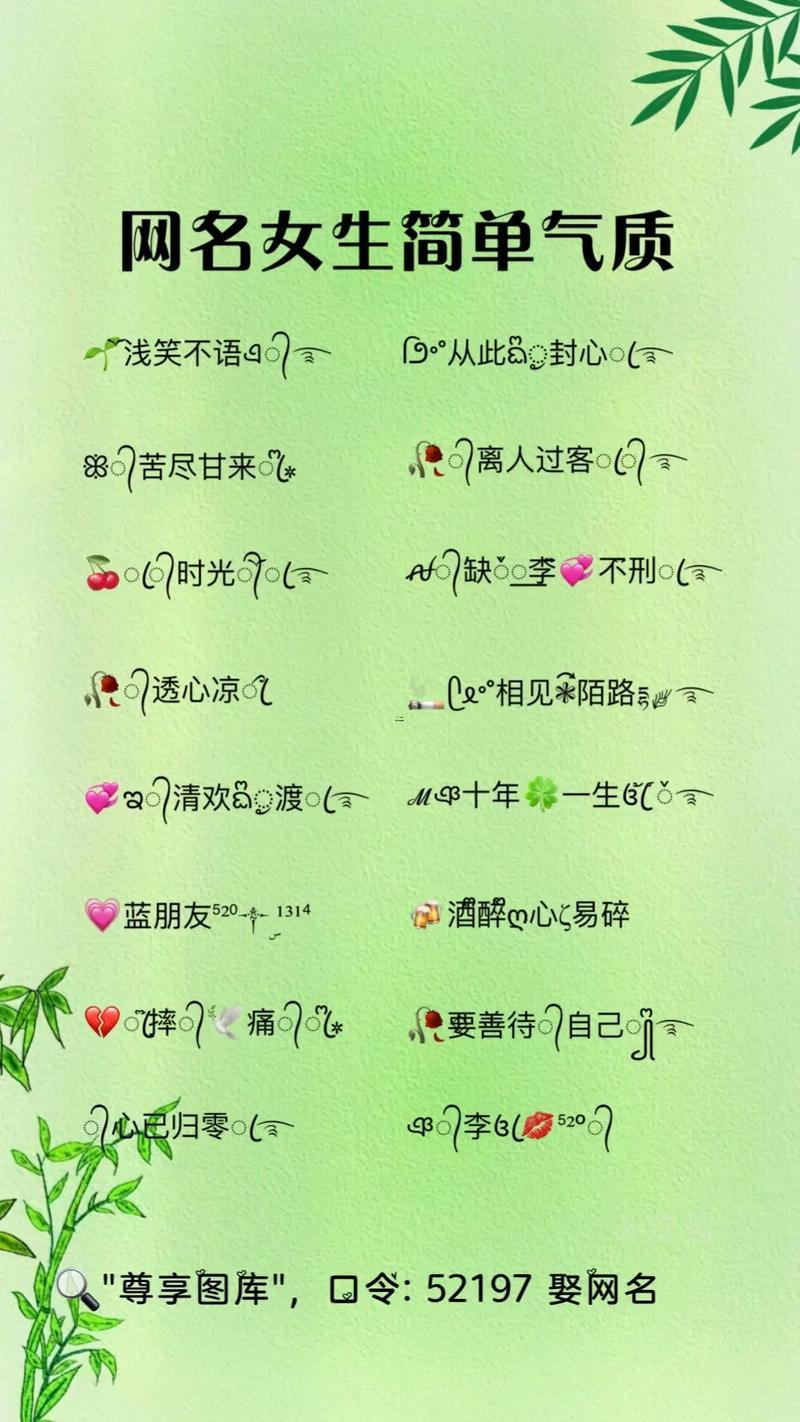 网名女生简单气质
🌱浅笑不语ঞ্ঝ᭄࿐
ᝰº°从此ඩි྄ུ封心ꦿ࿐
ꕥ᭄苦尽甘来ꦿ⁎
🥀᭄离人过客ꦿ᭄࿐
🍒ꦿ᭄时光᭄ꦿ࿐
ꪝ᭄缺̌李💞不刑ꦿ࿐
🥀᭄透心凉ོ
🚬ᥫº°相见❋陌路࿐
💞ఇ᭄清欢ඩි྄ུ渡ꦿ࿐
ℳঞ十年🍀一生ꦿ̌࿐
💗蓝朋友⁵²⁰ ¹³¹⁴
🍻酒醉ღ心ζ易碎
💔摔᭄🕊️痛᭄ꦿ⁎
🥀要善待᭄自己࿐
᭄心已归零ꦿ࿐
ঞ᭄李ꦿ💋⁵²⁰᭄
🔍"尊享图库"，口令: 52197 娶网名